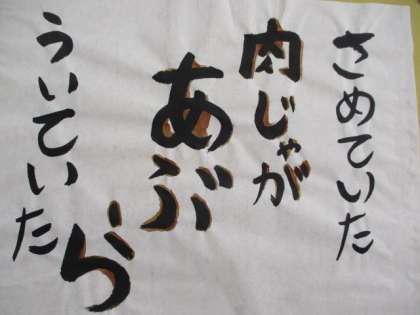 さめていた
肉じゃが
あぶら
ういていた